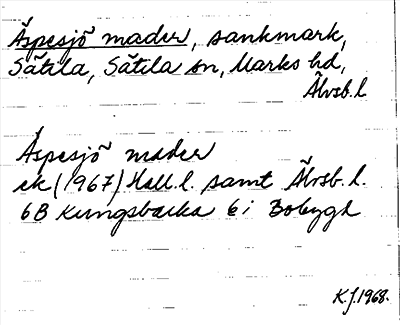 Äspesjö mader, sankmark,
Sätila, Sätila sn, Marks hd,
Älvsb. l
Äspesjö mader
ek (1967) Hall. l. samt Älvsb. l.
6B Kungsbacka 6i Bobygh
K.J. 1968.